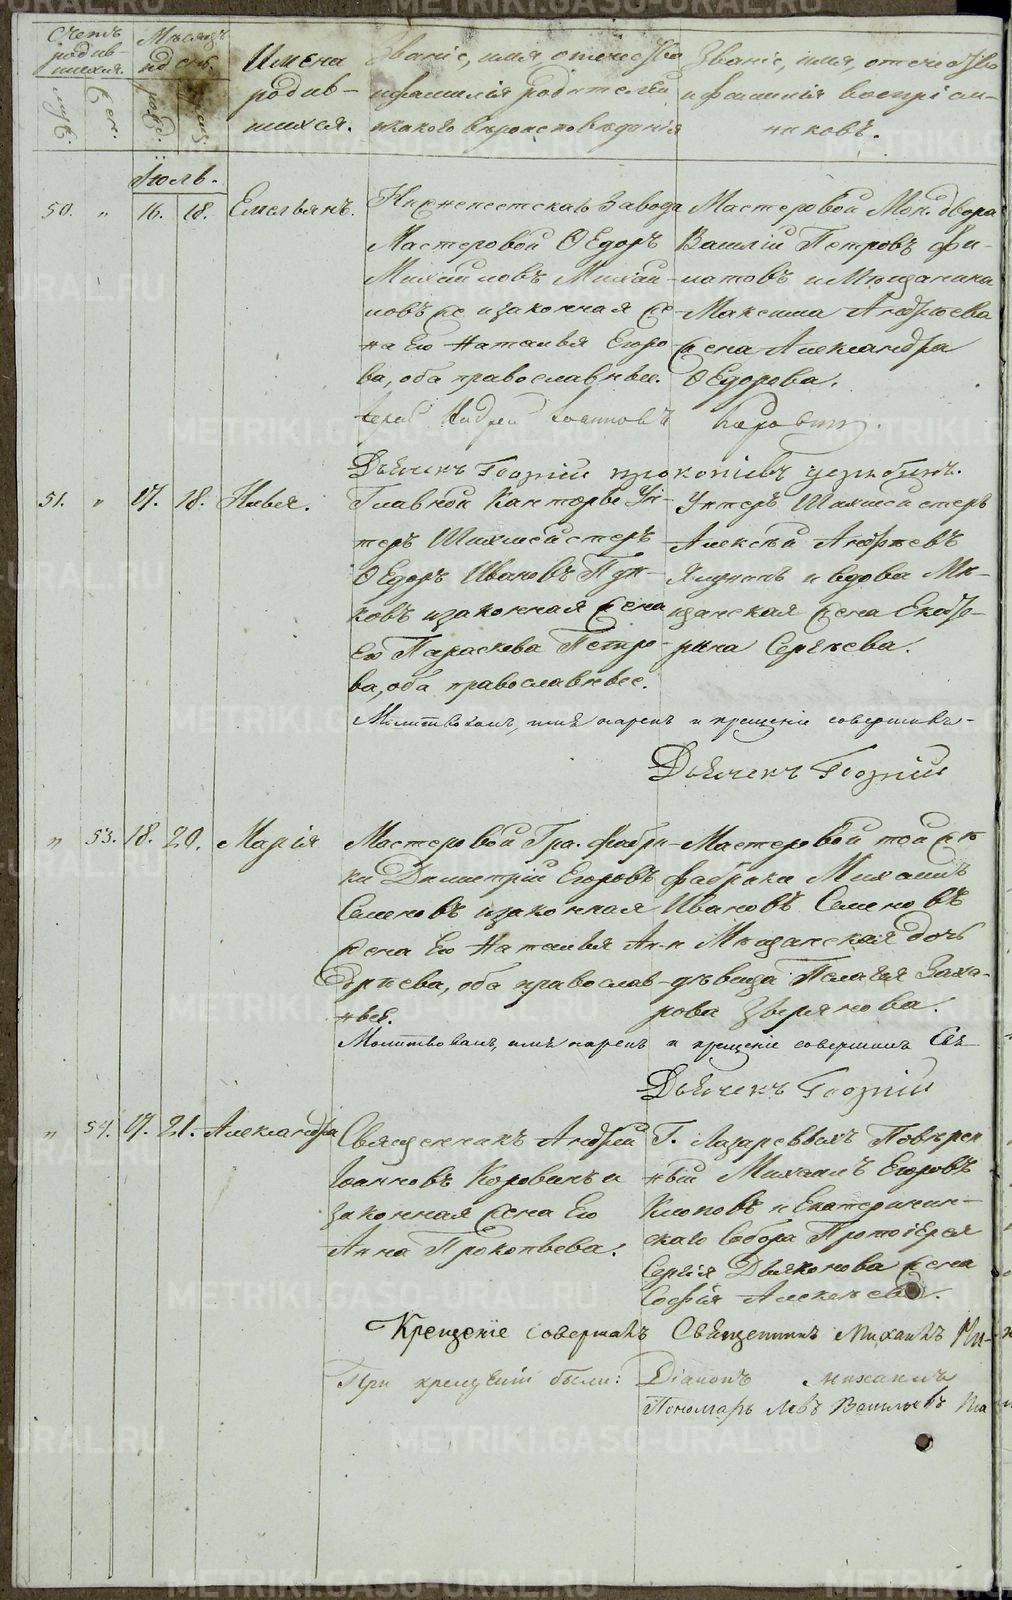 Счетъ родив-шихся.
муж.
жен.
Мѣсяцъ и день.
рожд.
Имена родив-шихся.
Званіе, имя, отечество и фамилія родителей и какого вѣроисповѣданія
Званіе, имя, отечество и фамилія воспріем-никовъ.
Іюль.
50. " 16. 18. Емельянъ.
Нижнеисетскаго Завода
Мастеровой Ѳедоръ
Михайловъ Михай-
ловъ же и законная же-
на Его Наталья Егоро-
ва, оба православные.
Мастеровой Мон. двора
Василій Петровъ Фи-
латовъ и Мещанина
Максима Андреева
жена Александра
Ѳедорова.
Іерей Андрей Іоанновъ Коровинъ.
Дьячекъ Георгій Прокопіевъ
51. " 17. 18. Илья.
Главной Канторы Ун-
теръ Шихмейстеръ
Ѳедоръ Ивановъ Пуж-
ковъ и законная жена
Его Параскева Петро-
ва, оба православные.
Унтеръ Шихмейстеръ
Алексѣй Андреевъ
и вдова Мѣ-
щанская жена Екате-
рина Сергѣева.
Молитвовалъ, имя нарекъ и крещеніе совершилъ
Дьячекъ Георгій
" 53. 18. 20. Марія
Мастеровой Гра. фабри-
ки Димитрій Егоровъ
Семеновъ и законная
жена Его Наталья Ан-
дреева, оба православ-
ные.
Мастеровой той же
фабрики Михаилъ
Ивановъ Семеновъ
и Мещанская дочь
дѣвица Пелагея Заха-
рова Зверянова.
Молитвовалъ, имя нарекъ и крещеніе совершилъ Свя
Дьячекъ Георгій
" 54. 19. 21. Александра
Священникъ Андрей
Іоанновъ Коровинъ и
законная жена Его
Анна Прокопьева.
Г. Лазаревыхъ Повѣрен
ный Михаилъ Егоровъ
Клоповъ и Екатеринин-
скаго Собора Протоіерея
Сергія Дьяконова жена
Софія Алексѣева.
Крещеніе совершалъ Священникъ Михаилъ
При крещеніи были: Діаконъ Михаилъ
Пономарь Левъ Васильевъ
METRIKI.GASO-URAL.RU